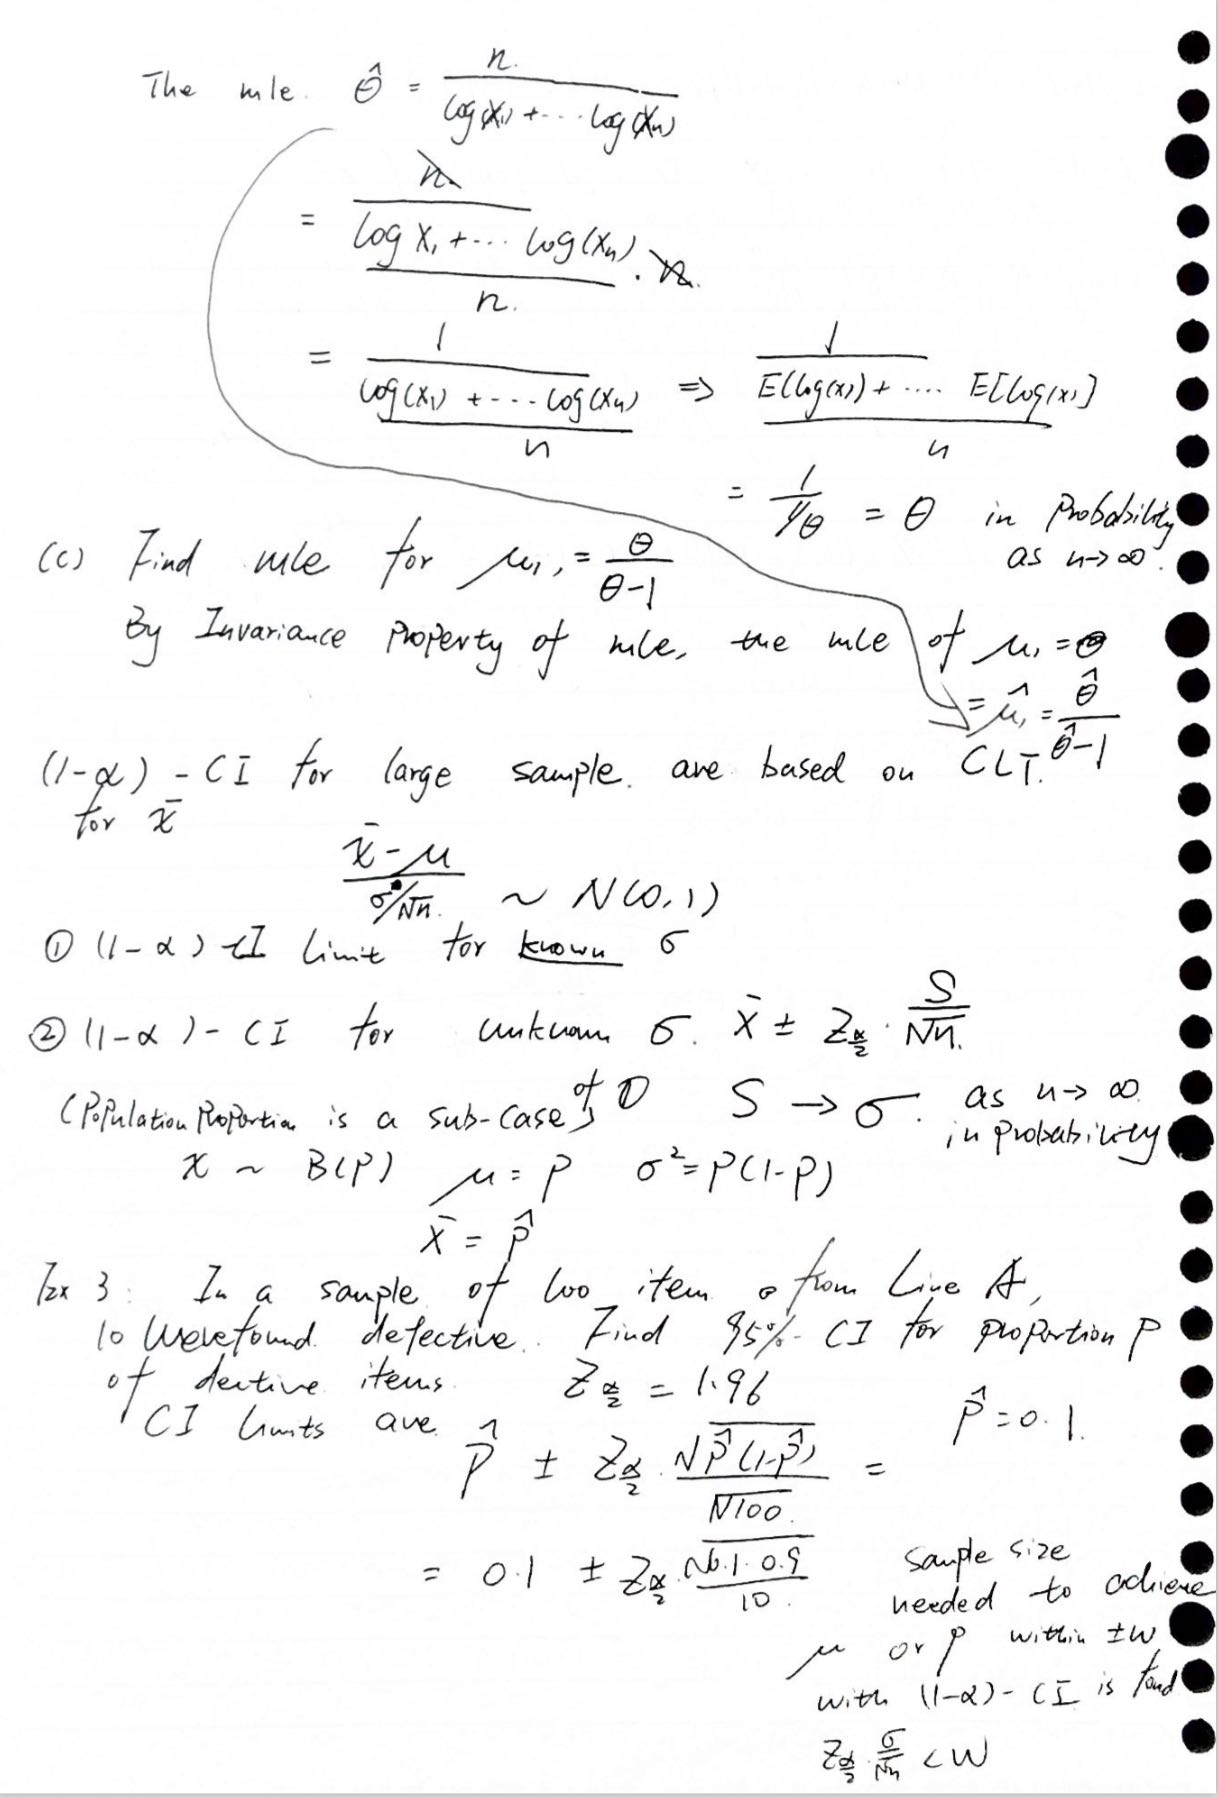 The mle. θ̂ = n. / (log(X₁) + ... log(Xn))
= n. / ((log X₁ + ... log(Xn)) / n. · n.)
= 1 / ((log(X₁) + --- log(Xn)) / n) ⇒ 1 / ((E(log(x)) + .... E[log(x)]) / n)
= 1 / (1/θ) = θ in Probability
as n→∞.
(c) Find mle for μ₁, = θ / (θ-1)
By Invariance Property of mle, the mle of μ₁ = θ
= μ̂₁ = θ̂ / (θ̂-1)
(1-α) - CI for large sample. are based on CLT.
for x̄
(x̄ - μ) / (σ/√n.) ~ N(0,1)
① (1-α) CI Limit for known σ
② (1-α) - CI for unknown σ. X̄ ± Z_{α/2} · S / √n.
(Population Proportion is a sub-case of ① S → σ. as n→∞.
in probability
x ~ B(p) μ = p σ² = p(1-p)
X̄ = p̂
Ex 3: In a sample of 100 item from Line A,
10 were found defective. Find 95% CI for proportion p
of dective items. Z_{α/2} = 1.96
CI limits are p̂ = 0.1.
p̂ ± Z_{α/2} · √(p̂(1-p̂)) / √100. =
= 0.1 ± Z_{α/2} · √(0.1·0.9) / 10.
Sample size
needed to achieve
μ or p within ±W
with (1-α)- CI is fond
Z_{α/2} · σ/√n < W